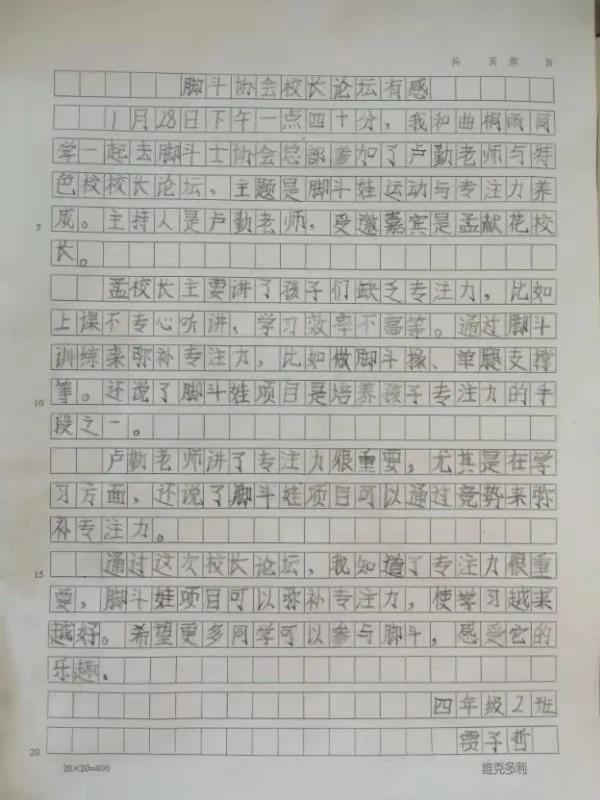 共 页 第 页
脚斗协会校长论坛有感
1月28日下午一点四十分，我和曲桐雨同
学一起去脚斗士协会总部参加了卢勤老师与特
色校校长论坛，主题是脚斗娃运动与专注力养
成。主持人是卢勤老师，受邀嘉宾是孟献花校
5
长。
孟校长主要讲了孩子们缺乏专注力，比如
上课不专心听讲、学习效率不高等。通过脚斗
训练来弥补专注力，比如做脚斗操、单腿支撑
等。还说了脚斗娃项目是培养孩子专注力的手
10
段之一。
卢勤老师讲了专注力很重要，尤其是在学
习方面，还说了脚斗娃项目可以通过竞势来弥
补专注力。
通过这次校长论坛，我知道了专注力很重
15
要，脚斗娃项目可以弥补专注力，使学习越来
越好。希望更多同学可以参与脚斗，感受它的
乐趣。
四年级2班
贾子哲
20
20×20=400
维克多利